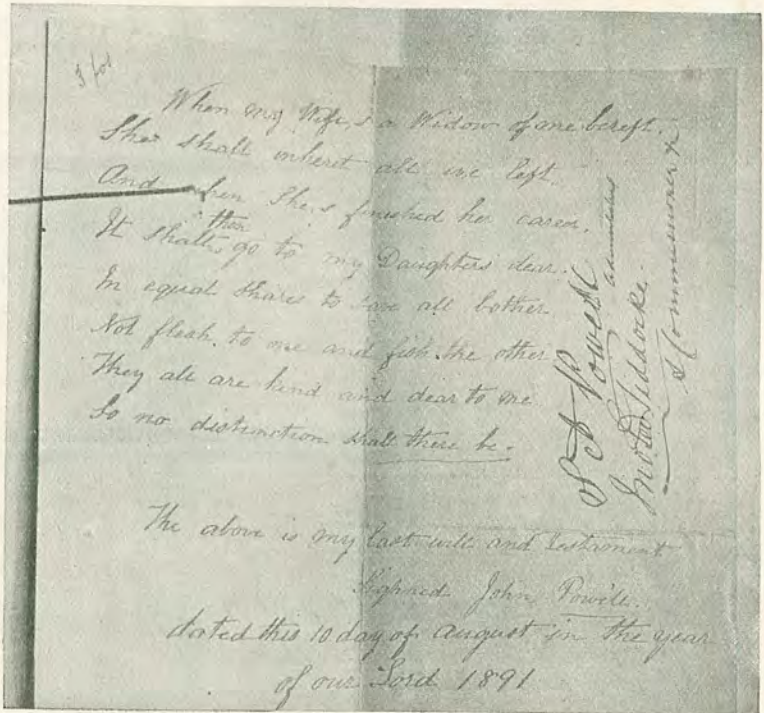 When my Wife,s a Widow of me bereft.
She shall inherit all ive left
And when She,s finished her career.
then
It shall go to my Daughters dear.
In equal shares to save all bother
Not flesh, to one and fish the other
They all are kind and dear to me
So no distinction shall there be.
The above is my last will and testament
Signed John Powell.
dated this 10 day of August in the year
of our Lord 1891
S A Powell
A Commissioner &c